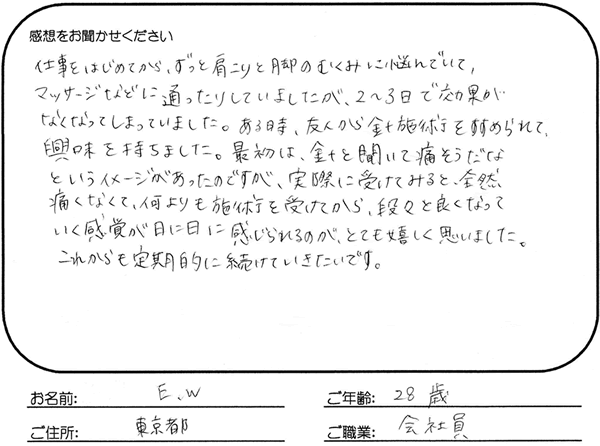 感想をお聞かせください
仕事をはじめてから、ずっと肩こりと脚のむくみに悩んでいて、
マッサージなどに通ったりしていましたが、2〜3日で効果が
なくなってしまっていました。ある時、友人から針施術をすすめられて、
興味を持ちました。最初は、針と聞いて痛そうだな
というイメージがあったのですが、実際に受けてみると、全然
痛くなくて、何よりも施術を受けてから、段々と良くなって
いく感覚が日に日に感じられるのが、とても嬉しく思いました。
これからも定期的に続けていきたいです。
お名前: E.W ご年齢: 28歳
ご住所: 東京都 ご職業: 会社員